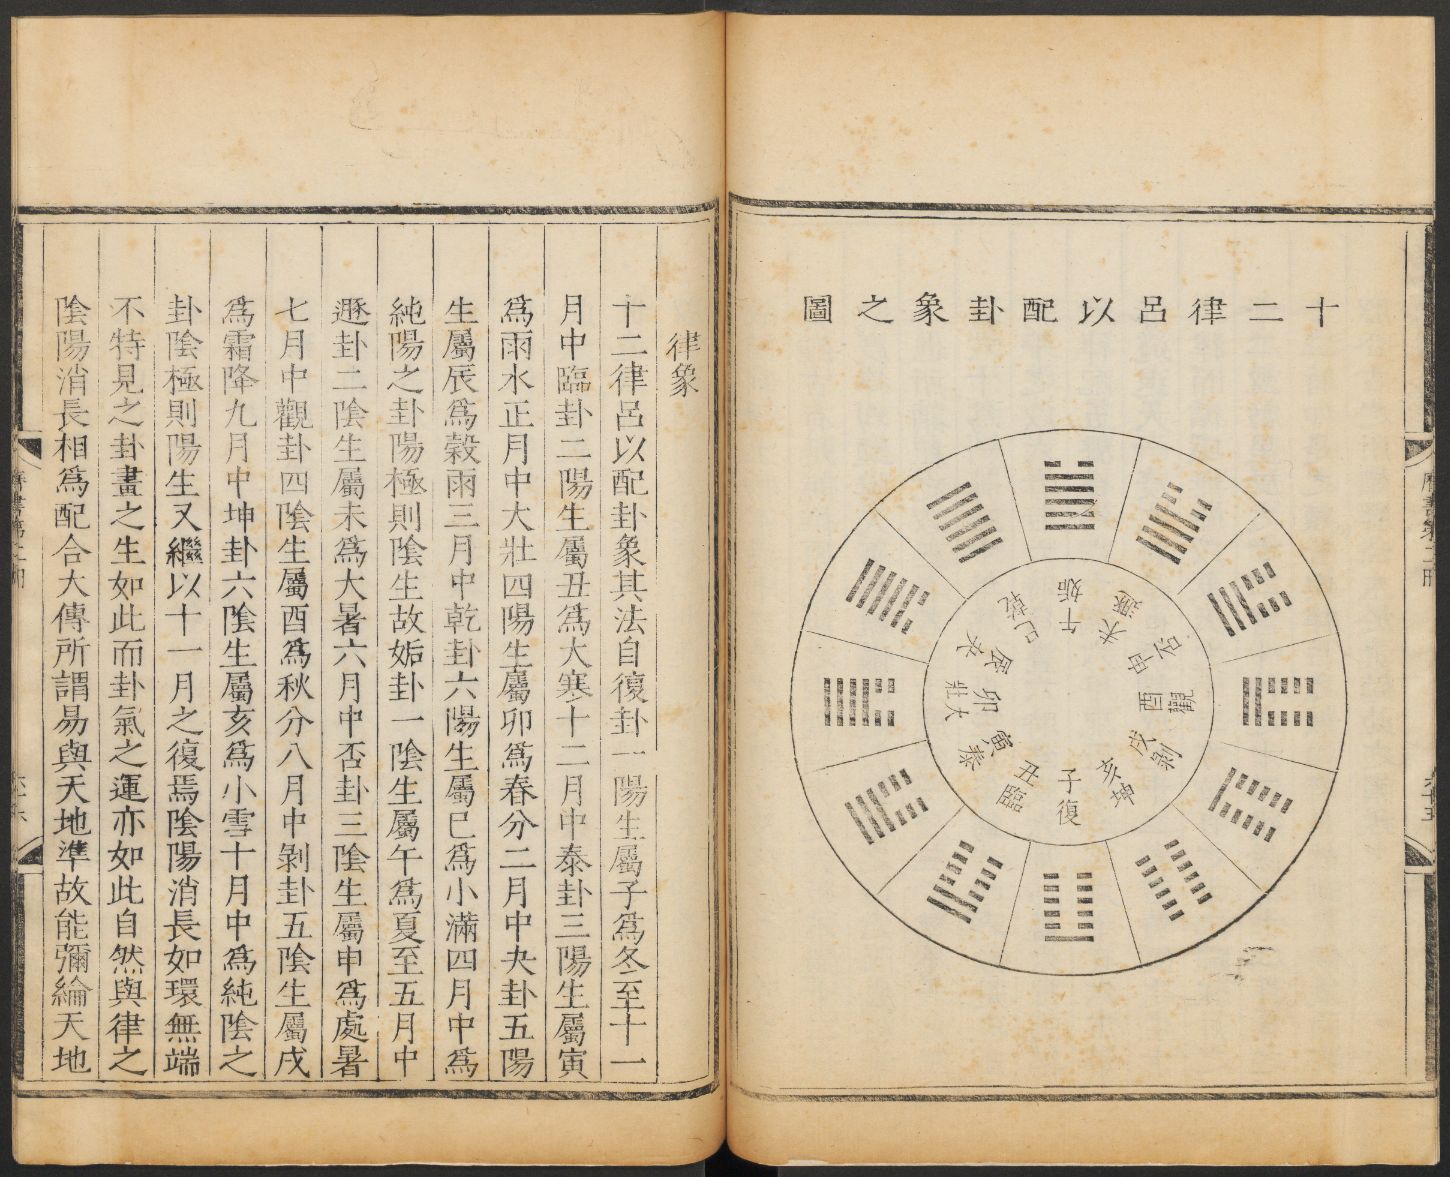 十二律呂以配卦象之圖
姤
午
遯
未
否
申
觀
酉
剝
戌
坤
亥
復
子
臨
丑
泰
寅
大壯
卯
夬
辰
乾
巳
律象
十二律呂以配卦象其法自復卦一陽生屬子爲冬至十一
月中臨卦二陽生屬丑爲大寒十二月中泰卦三陽生屬寅
爲雨水正月中大壯四陽生屬卯爲春分二月中夬卦五陽
生屬辰爲穀雨三月中乾卦六陽生屬巳爲小滿四月中爲
純陽之卦陽極則陰生故姤卦一陰生屬午爲夏至五月中
遯卦二陰生屬未爲大暑六月中否卦三陰生屬申爲處暑
七月中觀卦四陰生屬酉爲秋分八月中剝卦五陰生屬戌
爲霜降九月中坤卦六陰生屬亥爲小雪十月中爲純陰之
卦陰極則陽生又繼以十一月之復焉陰陽消長如環無端
不特見之卦畫之生如此而卦氣之運亦如此自然與律之
陰陽消長相爲配合大傳所謂易與天地準故能彌綸天地